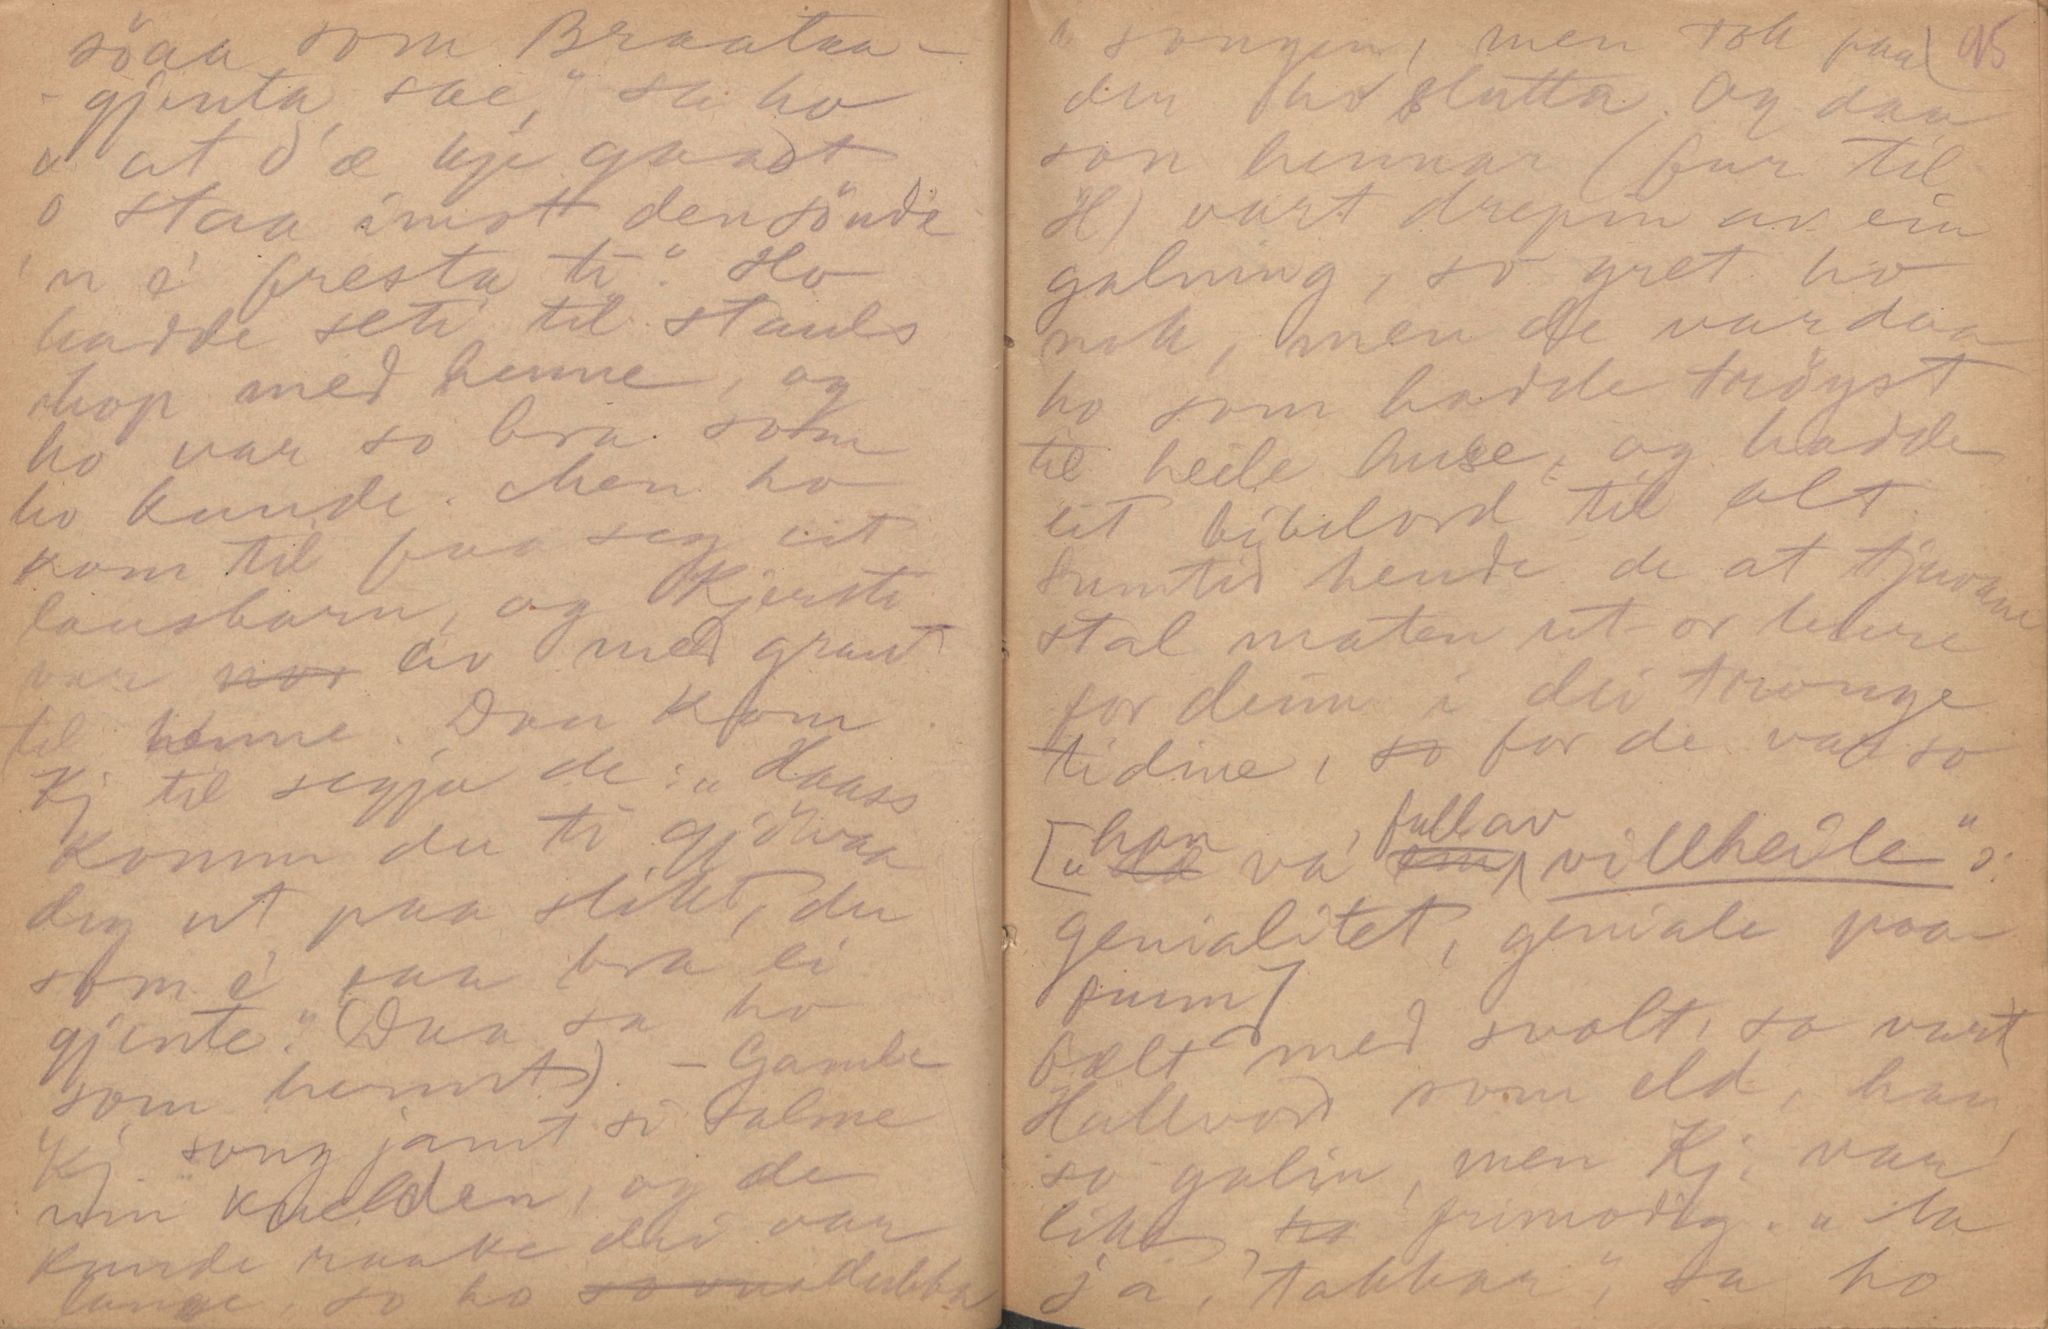 söaa som Braataa-
- gjenta sae," sa ho
" at d'æ kje gaadt
o staa imott den sönde
'n é fresta ti." Ho
hadde seti til stauls
ihop med henne, og
ho var so bra som
ho kunde. Men ho
kom til faa seg eit
lausbarn, og Kjersti
var av med graut
til henne. Daa kom
Kj til segja de: "Haass
komm du ti gjöraa
deg ut paa slikt, du
som é saa bra ei
gjente." (Daa sa ho
som hennt) - Gamle
Kj song jamt si salme
um kvelden, og de
kunde raake dei var
lange, so ho dubba
i songen, men tok paa 95
der ho slutta. Og daa
son hennar (far til
H) vart drepin av ein
galning, so gret ho
nok, men de var daa
ho som hadde tröyst
til heile huse, og hadde
eit bibelord til alt.
Sumtid hende de at tjuvane
stal maten ut or
for deim i dei tronge
tidine, for de var so
["han va' full av villheile" ɔ:
genialitet, geniale paa-
funn]
fælt med svolt, so vart
Hallvord som eld, han,
so galin, men Kj. var
like frimodig. "Ja
ja, takkar", sa ho